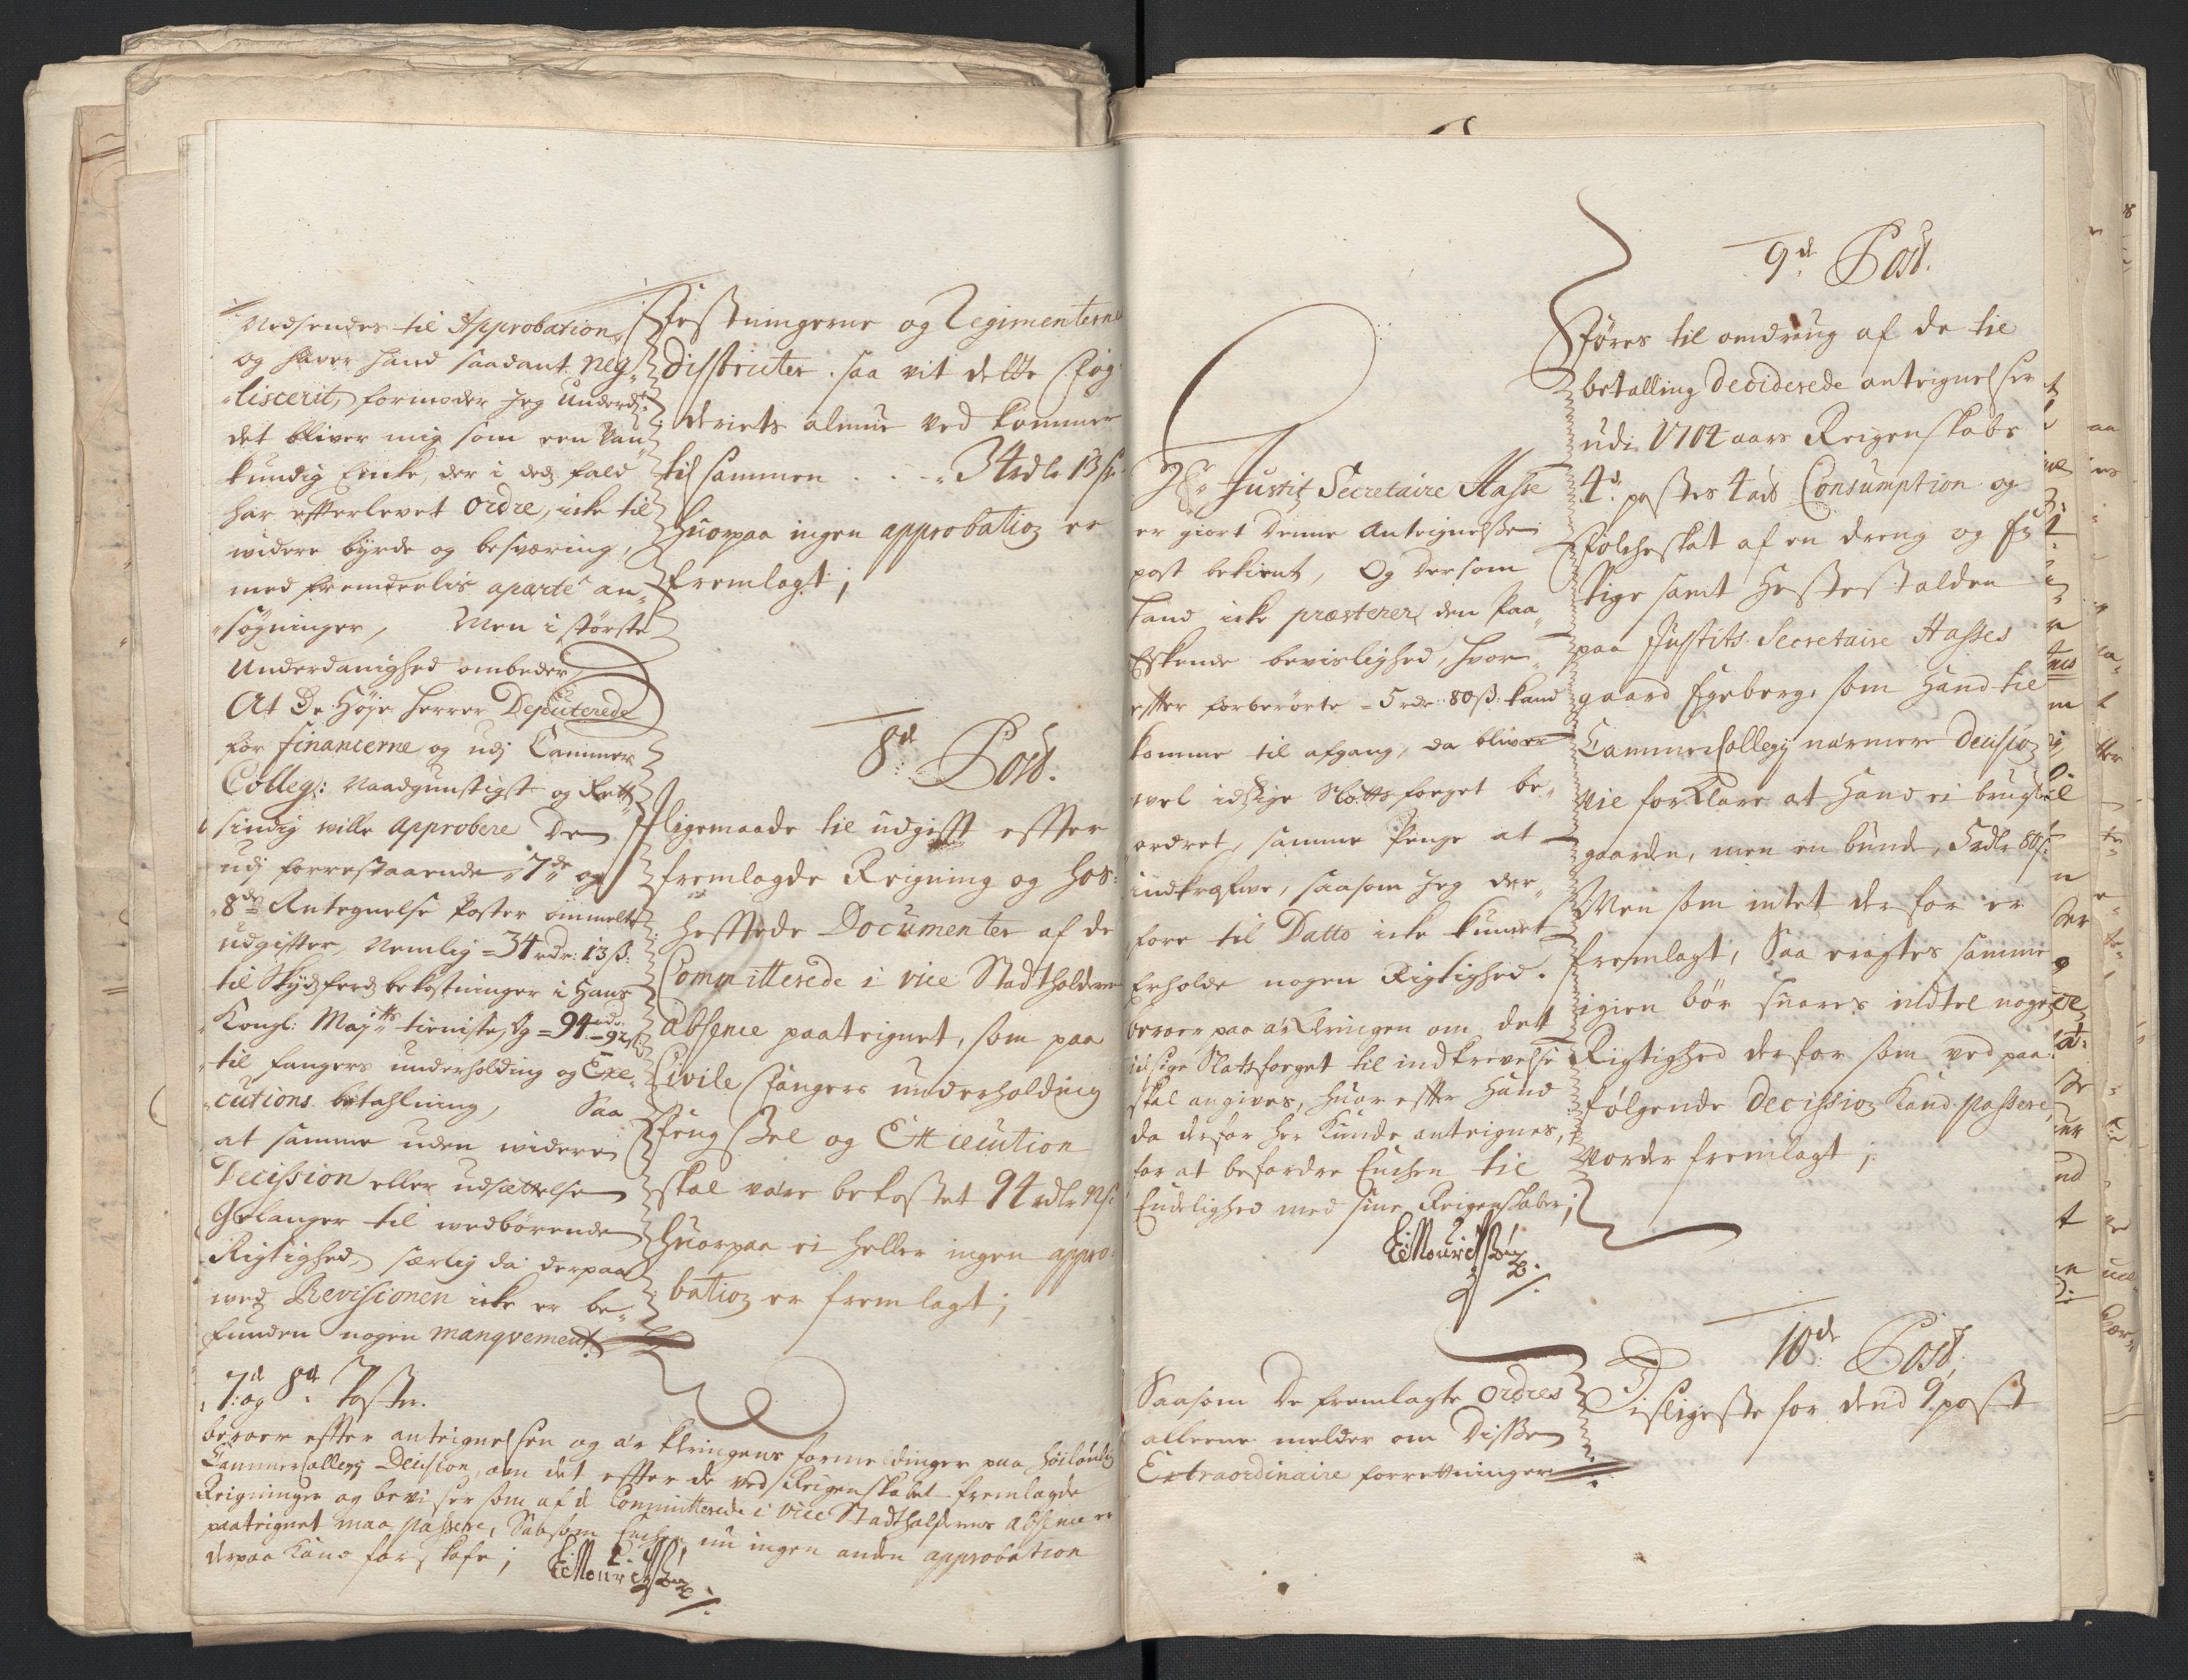 Nedsendes til Approbation
og hawer hand saadant neg-
-liscerit, formoder Jeg Underd:
det bliver mig som een Van-
kundig Encke, der i ded fald
har efterlevet ordre, icke til
widere byrde og besværing,
med fremdeelis aparte an-
-søgninger, Men i største
Underdanighed ombeder
At De Høje Herrer Deputerede
for financerne og udj Cammer
Colleg: Naadgunstigst og Rett-
sindig wille approbere De
udj forrestaaende 7de og
8de Antegnelse Poster ommelte
udgifter, Nemlig = 34 rdr: 13 ß:
til Skydsferds bekostninger i Hans
Kongl: Maytts tieniste, og = 94 rdr - 92 ß:
til fangers underholding og Exe-
cutions betahlning, Saa
at samme uden widere
Decission eller udsættelse
Gelanger til wedbørende
Rigtighed, særlig da derpaa
wed Revisionen icke er be-
funden nogen manqvement.
7d: og 8d: Poster.
beroer effter anteignelsen og ærklringens formeldinger paa høilovlig
Kammer Collegij Decision, om det effter de ved Reigenskabet fremlagde
Reigninger og beviser som af de Committerede i Vice Stadtholderens absence er
paateignet maa passere, Saasom Enchen nu ingen anden approbation
derpaa Kand forskafe;
Festningerne og Regimenterne
Districter. saa vit dette Fog-
deriets almue ved kommer
til sammen . . . 34 rdlr 13 ß:
huorpaa ingen approbation er
fremlagt;
8d: Post.
Ligemaade til udgifft effter
fremlagde Reigning og hos-
hefftede Documenter af de
Committerede i vice Stadtholderens
absence paateignet, som paa
Civile Fangers underholding
Fengssel og Execution
skal være bekostet 94 rdlr 92 ß:
huorpaa ei heller ingen appro-
bation er fremlagt;
Hr. Justitz Secretaire Hasse
er giort denne Anteignelse
post bekient, Og dersom
hand icke præsterer den Paa-
Eskende bevislighed, hvor-
effter forberørte = 5 rdr: 80 ß: kand
komme til afgang, da bliver
wel idzige Slotts foeget be-
ordret, samme Penge at
indkræfwe, saasom Jeg der-
fore til Datto icke kundet
Erholde nogen Rigtighed.
beroer paa ærklringen om det
idsige Slotsfoeget til indkrevelse
skal angives, huor effter Hand
da derfor her Kunde anteignes,
for at befordre Enchen til
Endelighed med sine Reigenskaber;
Saasom De fremlagte Ordres
alleene melder om Disse
Extraordinaire forretninger
9d: Post.
Føres til omdraug af de til
betalling deciderede anteignelser
udi 1704 aars Reigenskabs
4d: postes 4 ads Consumption og
Folcheskat af en dreng og En
Pige samt Hestestalden
paa Justits Secretaire Hasses
gaard Egeberg, som Hand til
Cammer Collegij nærmere decision
Vil forKlare at Hand ei brugte
gaarden, men en bunde, 5 rdlr 80 ß:
Men som intet derfor er
fremlagt, Saa eragtes samme
igien bør suares indtel nogen
Rigtighed derfor som ved paa-
følgende Decission Kand passere,
vorder fremlagt;
10de Post.
Disligeste for dend 9. post